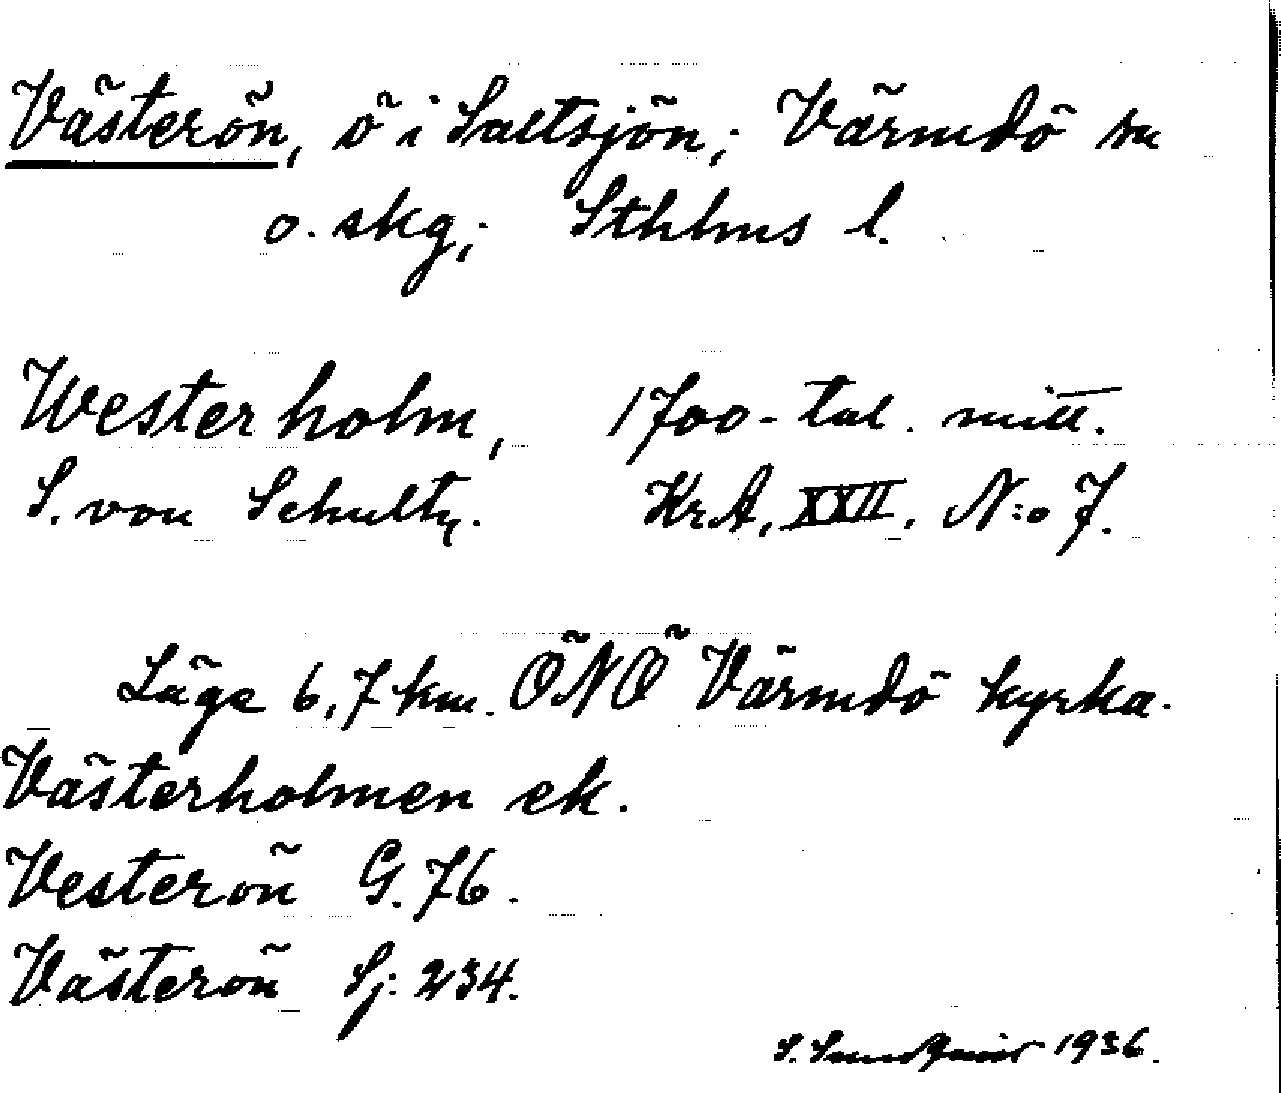 Västerön, ö i Saltsjön; Värmdö sn
o. skg; Sthlms l.
Westerholm, 1700-tal. mitt.
S. von Schultz. KrA, XXII, N:o 7.
Läge 6,7 km. ÖNÖ Värmdö kyrka.
Västerholmen ek.
Vesterön G. 76.
Västerön Sj: 234.
S. Sundquist 1936.